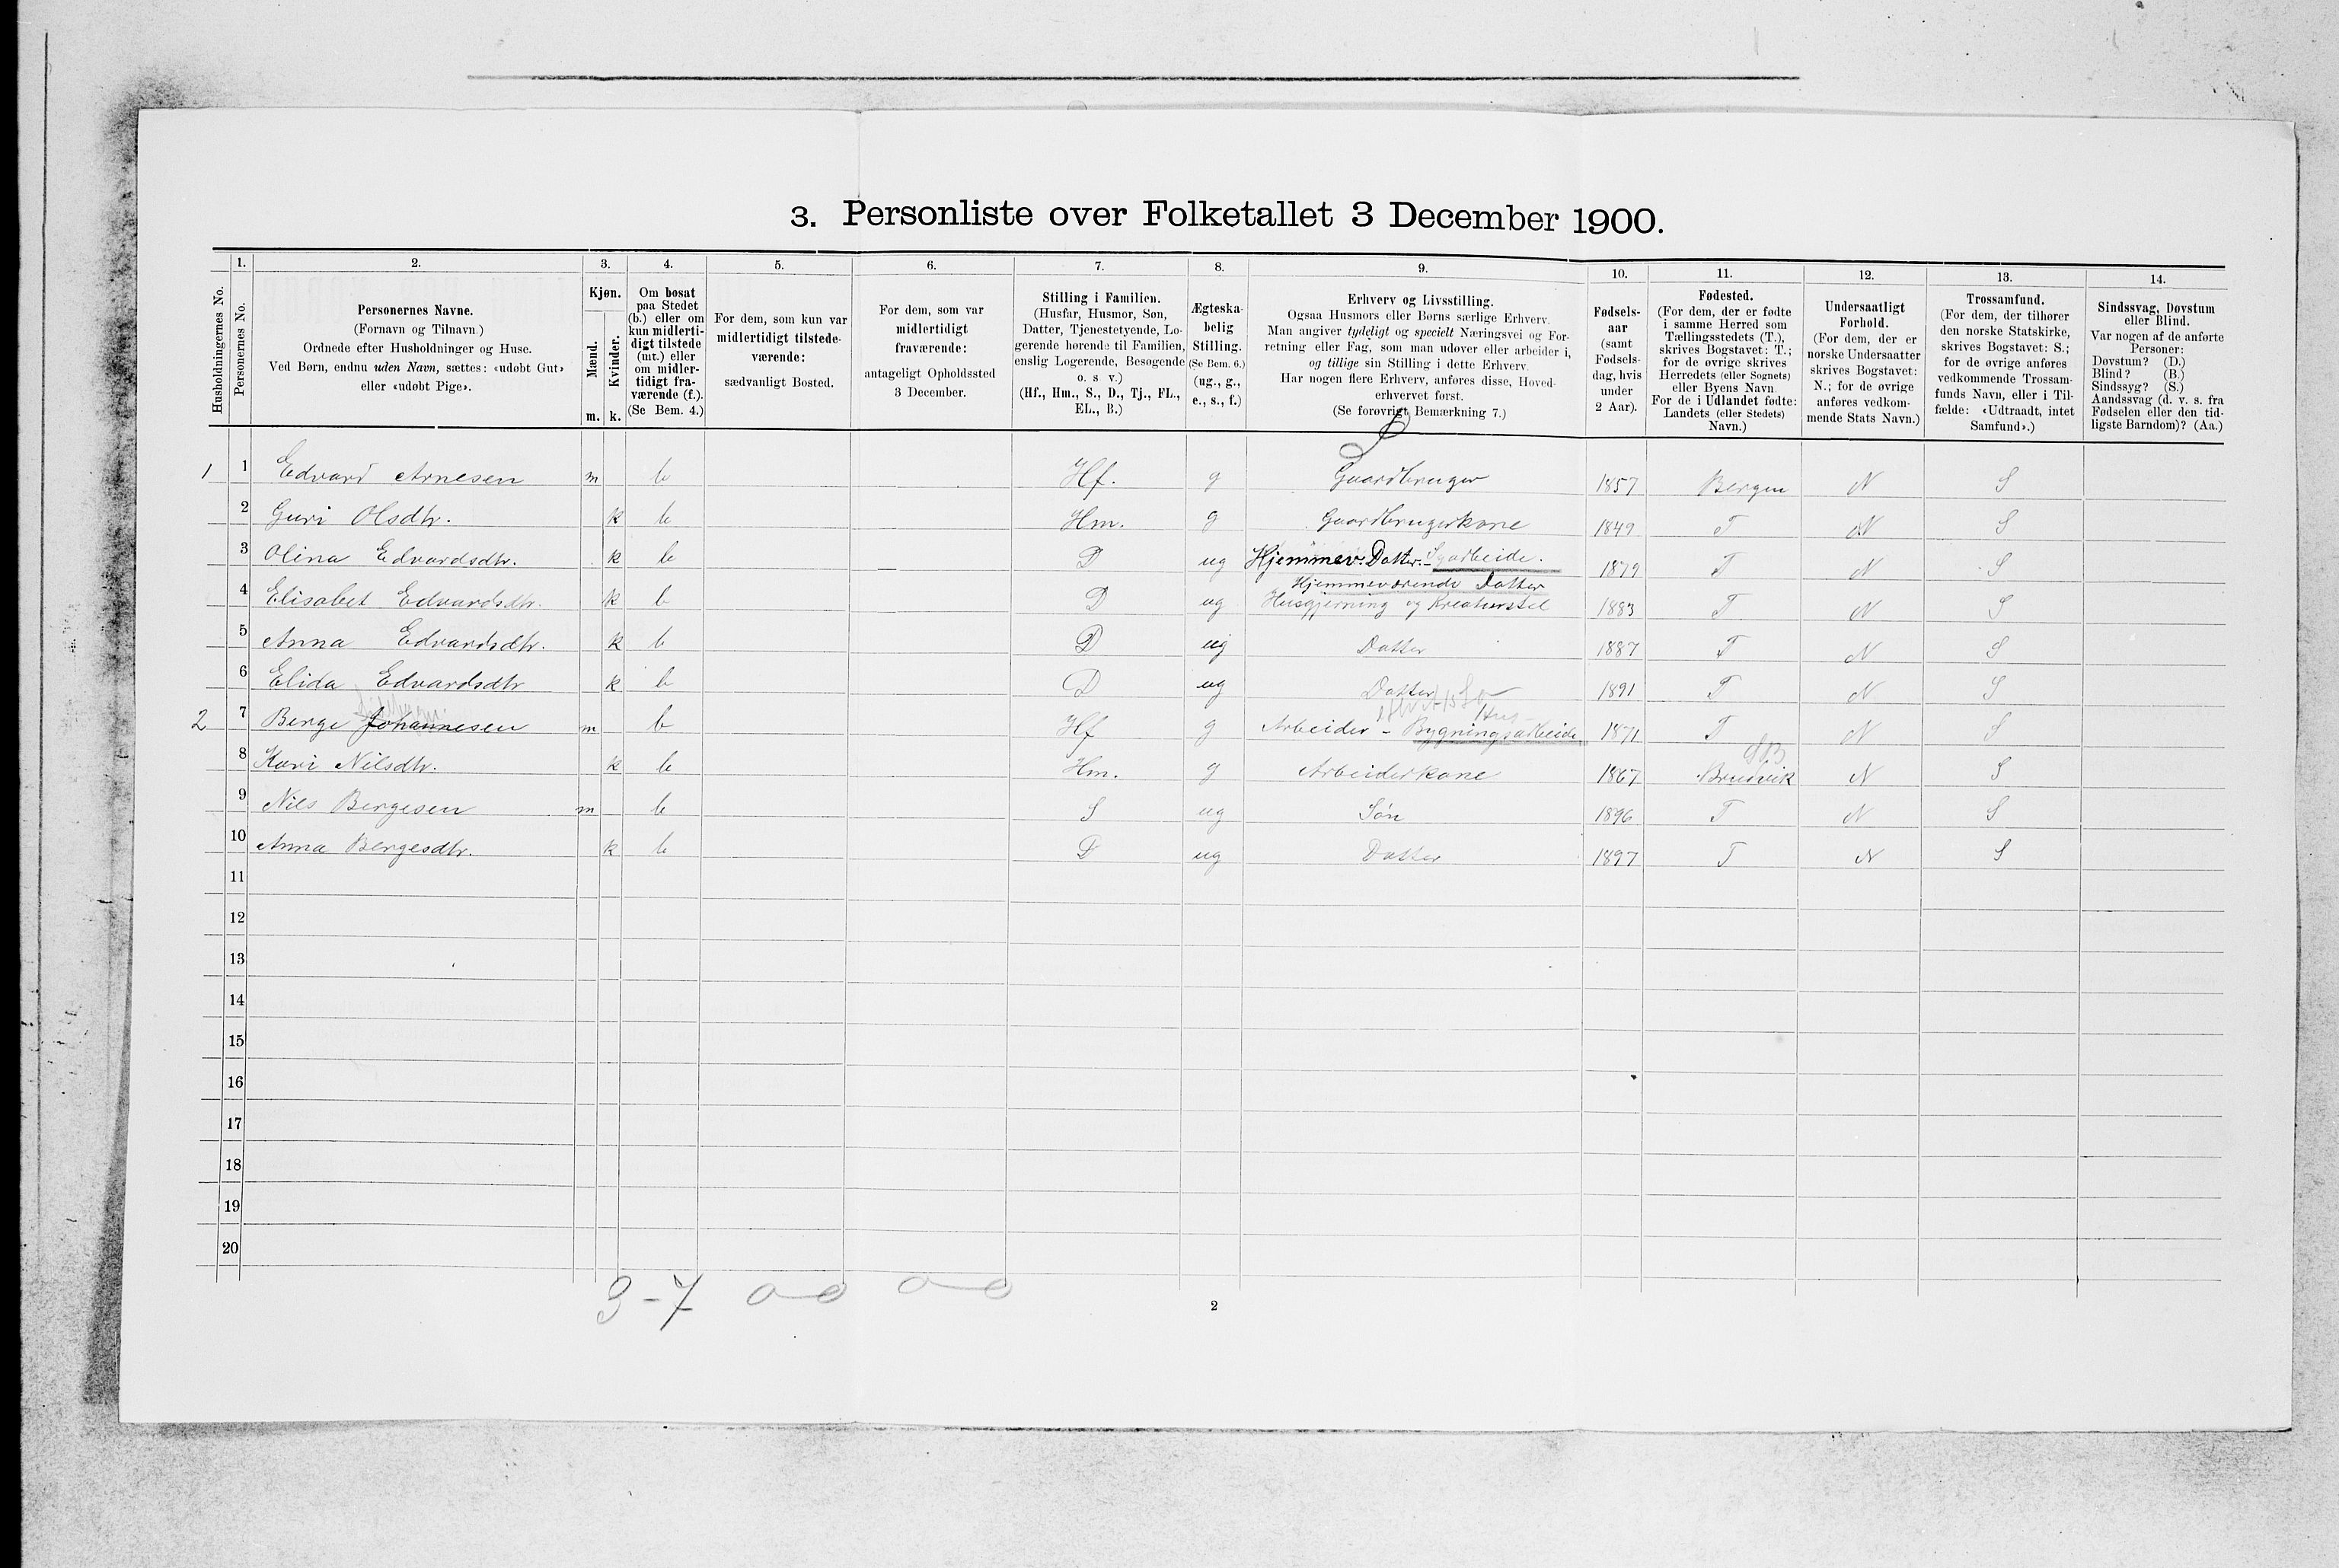 3. Personliste over Folketallet 3 December 1900.
1. 2. 3. 4. 5. 6. 7. 8. 9. 10. 11. 12. 13. 14.
Husholdningernes No.
Personernes No.
Personernes Navne.
(Fornavn og Tilnavn.)
Ordnede efter Husholdninger og Huse.
Ved Børn, endnu uden Navn, sættes: «udøbt Gut»
eller «udøbt Pige».
Kjøn.
Mænd.
Kvinder.
m. k.
Om bosat
paa Stedet
(b.) eller om
kun midlerti-
digt tilstede
(mt.) eller
om midler-
tidigt fra-
værende (f.).
(Se Bem. 4.)
For dem, som kun var
midlertidigt tilstede-
værende:
sædvanligt Bosted.
For dem, som var
midlertidigt
fraværende:
antageligt Opholdssted
3 December.
Stilling i Familien.
(Husfar, Husmor, Søn,
Datter, Tjenestetyende, Lo-
gerende hørende til Familien,
enslig Logerende, Besøgende
o. s v.)
(Hf., Hm., S., D., Tj., FL.,
EL., B.)
Ægteska-
belig
Stilling.
(Se Bem. 6.)
(ug., g.,
e., s., f.)
Erhverv og Livsstilling.
Ogsaa Husmors eller Børns særlige Erhverv.
Man angiver tydeligt og specielt Næringsvei og For-
retning eller Fag, som man udøver eller arbeider i,
og tillige sin Stilling i dette Erhverv.
Har nogen flere Erhverv, anføres disse, Hoved-
erhvervet først.
(Se forøvrigt Bemærkning 7.)
Fødsels-
aar
(samt
Fødsels-
dag, hvis
under
2 Aar).
Fødested.
(For dem, der er fødte
i samme Herred som
Tællingsstedets (T.),
skrives Bogstavet: T.;
for de øvrige skrives
Herredets (eller Sognets)
eller Byens Navn.
For de i Udlandet fødte:
Landets (eller Stedets)
Navn.)
Undersaatligt
Forhold.
(For dem, der er
norske Undersaatter
skrives Bogstavet:
N.; for de øvrige
anføres vedkom-
mende Stats Navn.)
Trossamfund.
(For dem, der tilhører
den norske Statskirke,
skrives Bogstavet: S.;
for de øvrige anføres
vedkommende Trossam-
funds Navn, eller i Til-
fælde: «Udtraadt, intet
Samfund».)
Sindssvag, Døvstum
eller Blind.
Var nogen af de anførte
Personer:
Døvstum? (D.)
Blind? (B.)
Sindssyg? (S.)
Aandssvag (d. v. s. fra
Fødselen eller den tid-
ligste Barndom)? (Aa.)
1 1 Edvard Arnesen m b Hf. g Gaardbruger 1857 Bergen N S
2 Guri Olsdtr. k b Hm. g Gaardbrugerkone 1849 T N S
3 Olina Edvardsdtr. k b D ug Hjemmev. Datter. - Syarbeide. 1879 T N S
Hjemmeværende Datter
4 Elisabet Edvardsdtr. k b D ug Husgjerning og Kreaturstel 1883 T N S
5 Anna Edvardsdtr. k b D ug Datter 1887 T N S
6 Elida Edvardsdtr k b D ug Datter 1891 T N S
Hus-
2 7 Berge Johannesen m b Hf g Arbeider - Bygningsarbeide 1871 T N S
8 Kari Nilsdtr. k b Hm. g Arbeiderkone 1867 Bruvik N S
9 Nils Bergesen m b S ug Søn 1896 T N S
10 Anna Bergesdtr. k b D ug Datter 1897 T N S
11
12
13
14
15
16
17
18
19
20
3-7 0-0 0-0
2